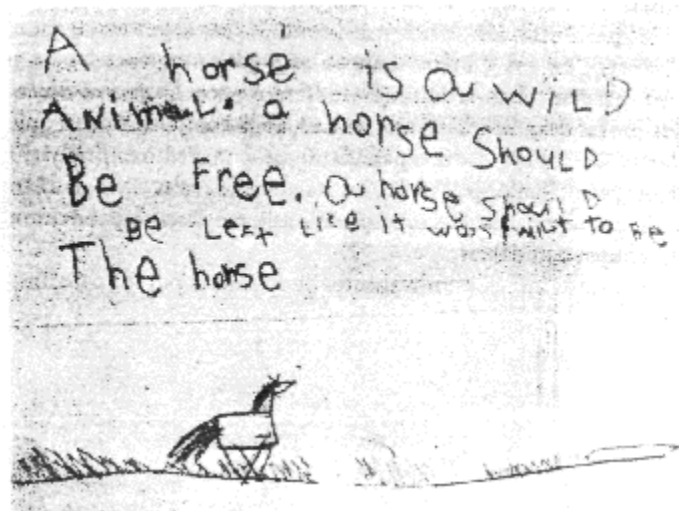 A horse is a WILD
ANimaL. a horse ShouLD
Be Free. a horse ShouLD
Be LeFt Like it was ment to Be
The horse